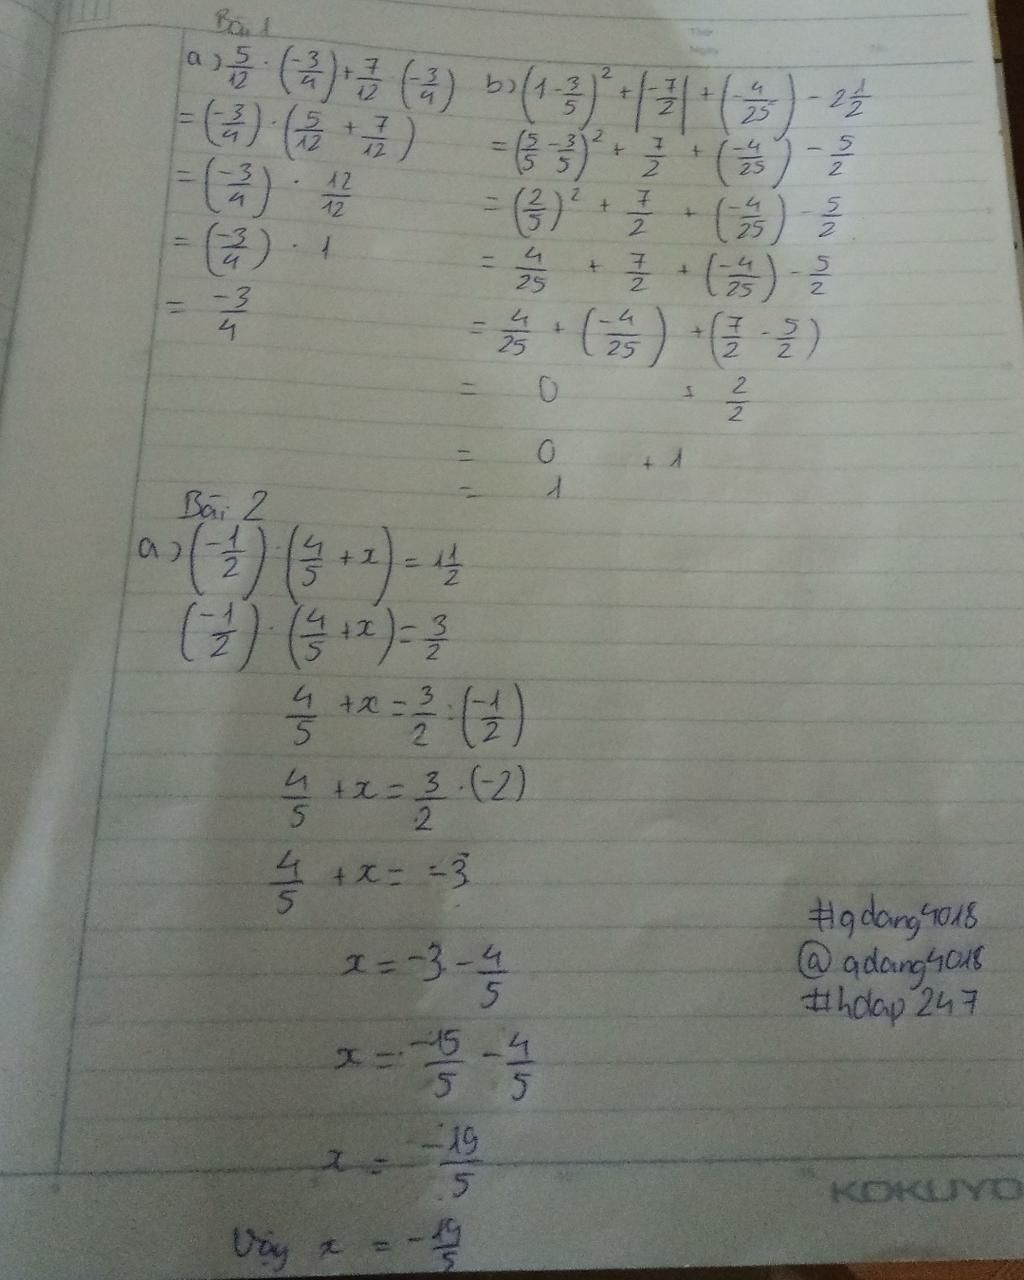 Bài 1
a) 5/12 · (-3/4) + 7/12 · (-3/4)
= (-3/4) · (5/12 + 7/12)
= (-3/4) · 12/12
= (-3/4) · 1
= -3/4
b) (1 - 3/5)² + |-7/2| + (-4/25) - 2 1/2
= (5/5 - 3/5)² + 7/2 + (-4/25) - 5/2
= (2/5)² + 7/2 + (-4/25) - 5/2
= 4/25 + 7/2 + (-4/25) - 5/2
= 4/25 + (-4/25) + (7/2 - 5/2)
= 0 + 2/2
= 0 + 1
= 1
Bài 2
a) (-1/2) · (4/5 + x) = 1 1/2
(-1/2) · (4/5 + x) = 3/2
4/5 + x = 3/2 : (-1/2)
4/5 + x = 3/2 · (-2)
4/5 + x = -3
x = -3 - 4/5
x = -15/5 - 4/5
x = -19/5
Vậy x = -19/5
#qdang4018
@qdang4018
#hdap247
KOKUYO